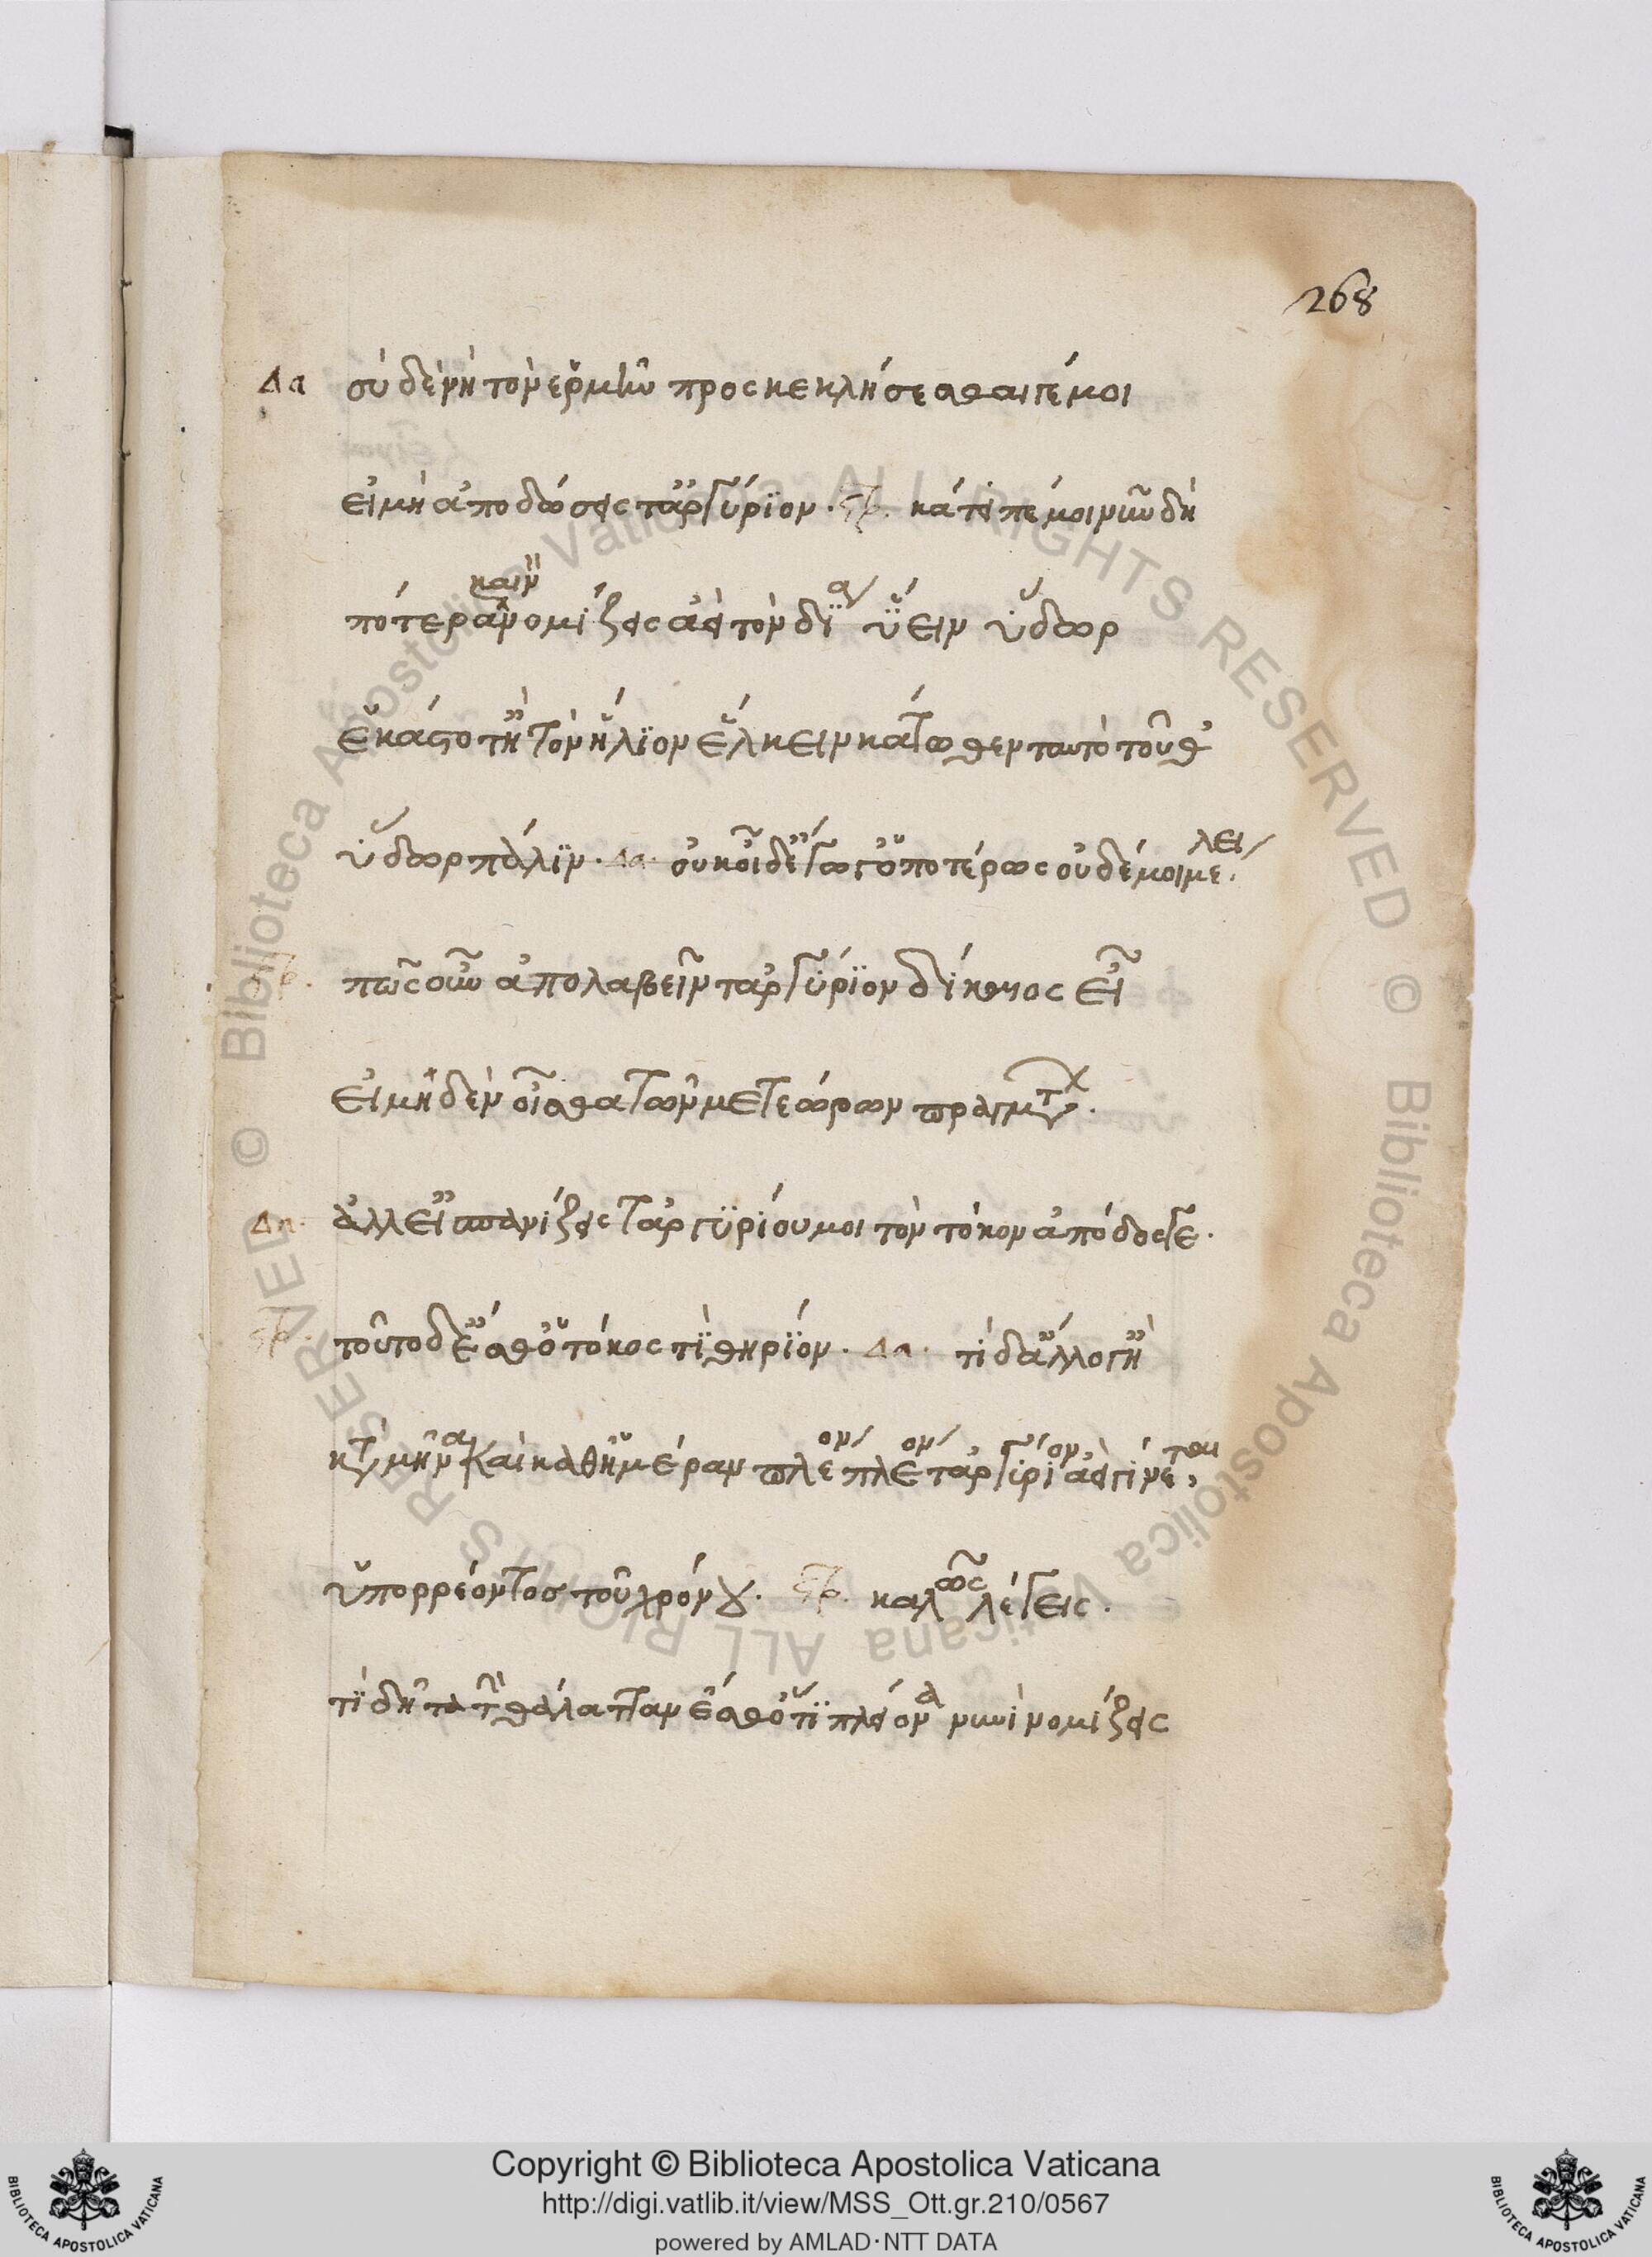 268
Δα σὺ δὲ νὴ τὸν ἑρμῆν προσκεκλήσεσθαί γέ μοι
εἰ μὴ ἀποδώσεις τἀργύριον · στρ. κάτειπέ μοι νῦν δὴ
πότερα νομίζεις καινὸν ἀεὶ τὸν δία ὕειν ὕδωρ
ἑκάστοτ' ἢ τὸν ἥλιον ἕλκειν κάτωθεν ταυτὸ τοῦθ'
ὕδωρ πάλιν · Δα · οὐκ οἶδ' ἔγωγ' ὁποτέρως οὐδέ μοι μέλει.
στρ. πῶς οὖν ἀπολαβεῖν τἀργύριον δίκαιος εἶ
εἰ μηδὲν οἶσθα τῶν μετεώρων πραγμάτων.
Δα · ἀλλ' εἰ σπανίζεις τἀργυρίου μοι τὸν τόκον ἀπόδος γε.
στρ. τοῦτο δ' ἔσθ' ὁ τόκος τί θηρίον · Δα · τί δ' ἄλλο γ' ἢ
κατὰ μῆνα καὶ καθ' ἡμέραν πλέον πλέον τἀργύριον ἀεὶ γίνεται,
ὑπορρέοντος τοῦ χρόνου. στρ. καλῶς λέγεις.
τί δῆτα τὴν θάλατταν ἔσθ' ὅτι πλείονα νυνὶ νομίζεις
Copyright © Biblioteca Apostolica Vaticana
http://digi.vatlib.it/view/MSS_Ott.gr.210/0567
powered by AMLAD·NTT DATA
BIBLIOTECA APOSTOLICA VATICANA
BIBLIOTECA APOSTOLICA VATICANA
© Biblioteca Apostolica Vaticana ALL RIGHTS RESERVED
© Biblioteca Apostolica Vaticana ALL RIGHTS RESERVED